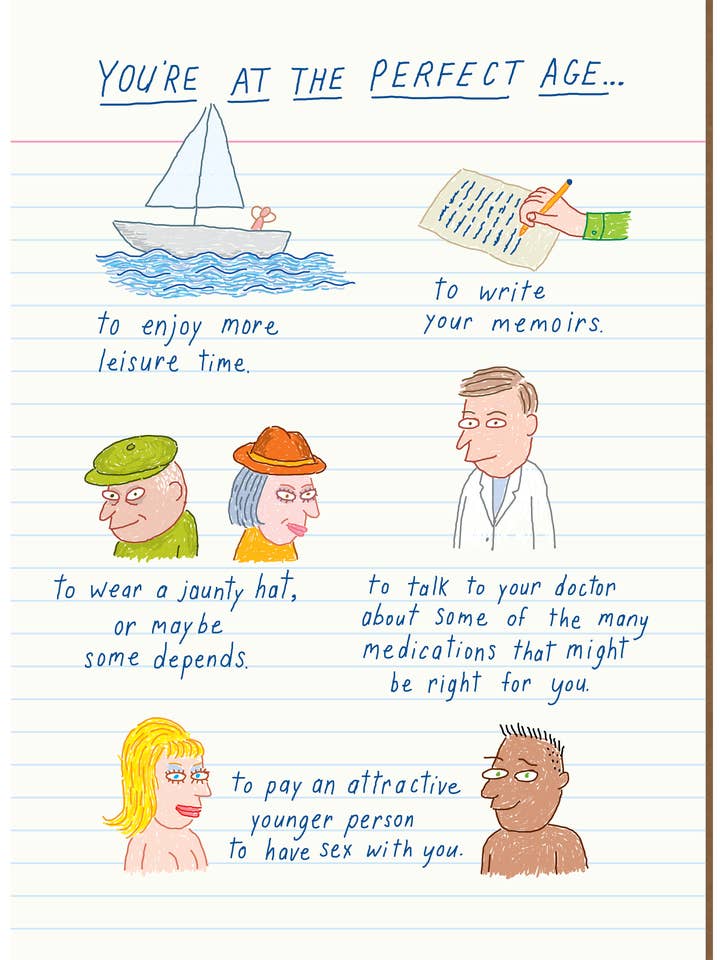 YOU'RE AT THE PERFECT AGE...
to enjoy more
leisure time.
to write
your memoirs.
to wear a jaunty hat,
or maybe
some depends.
to talk to your doctor
about some of the many
medications that might
be right for you.
to pay an attractive
younger person
to have sex with you.